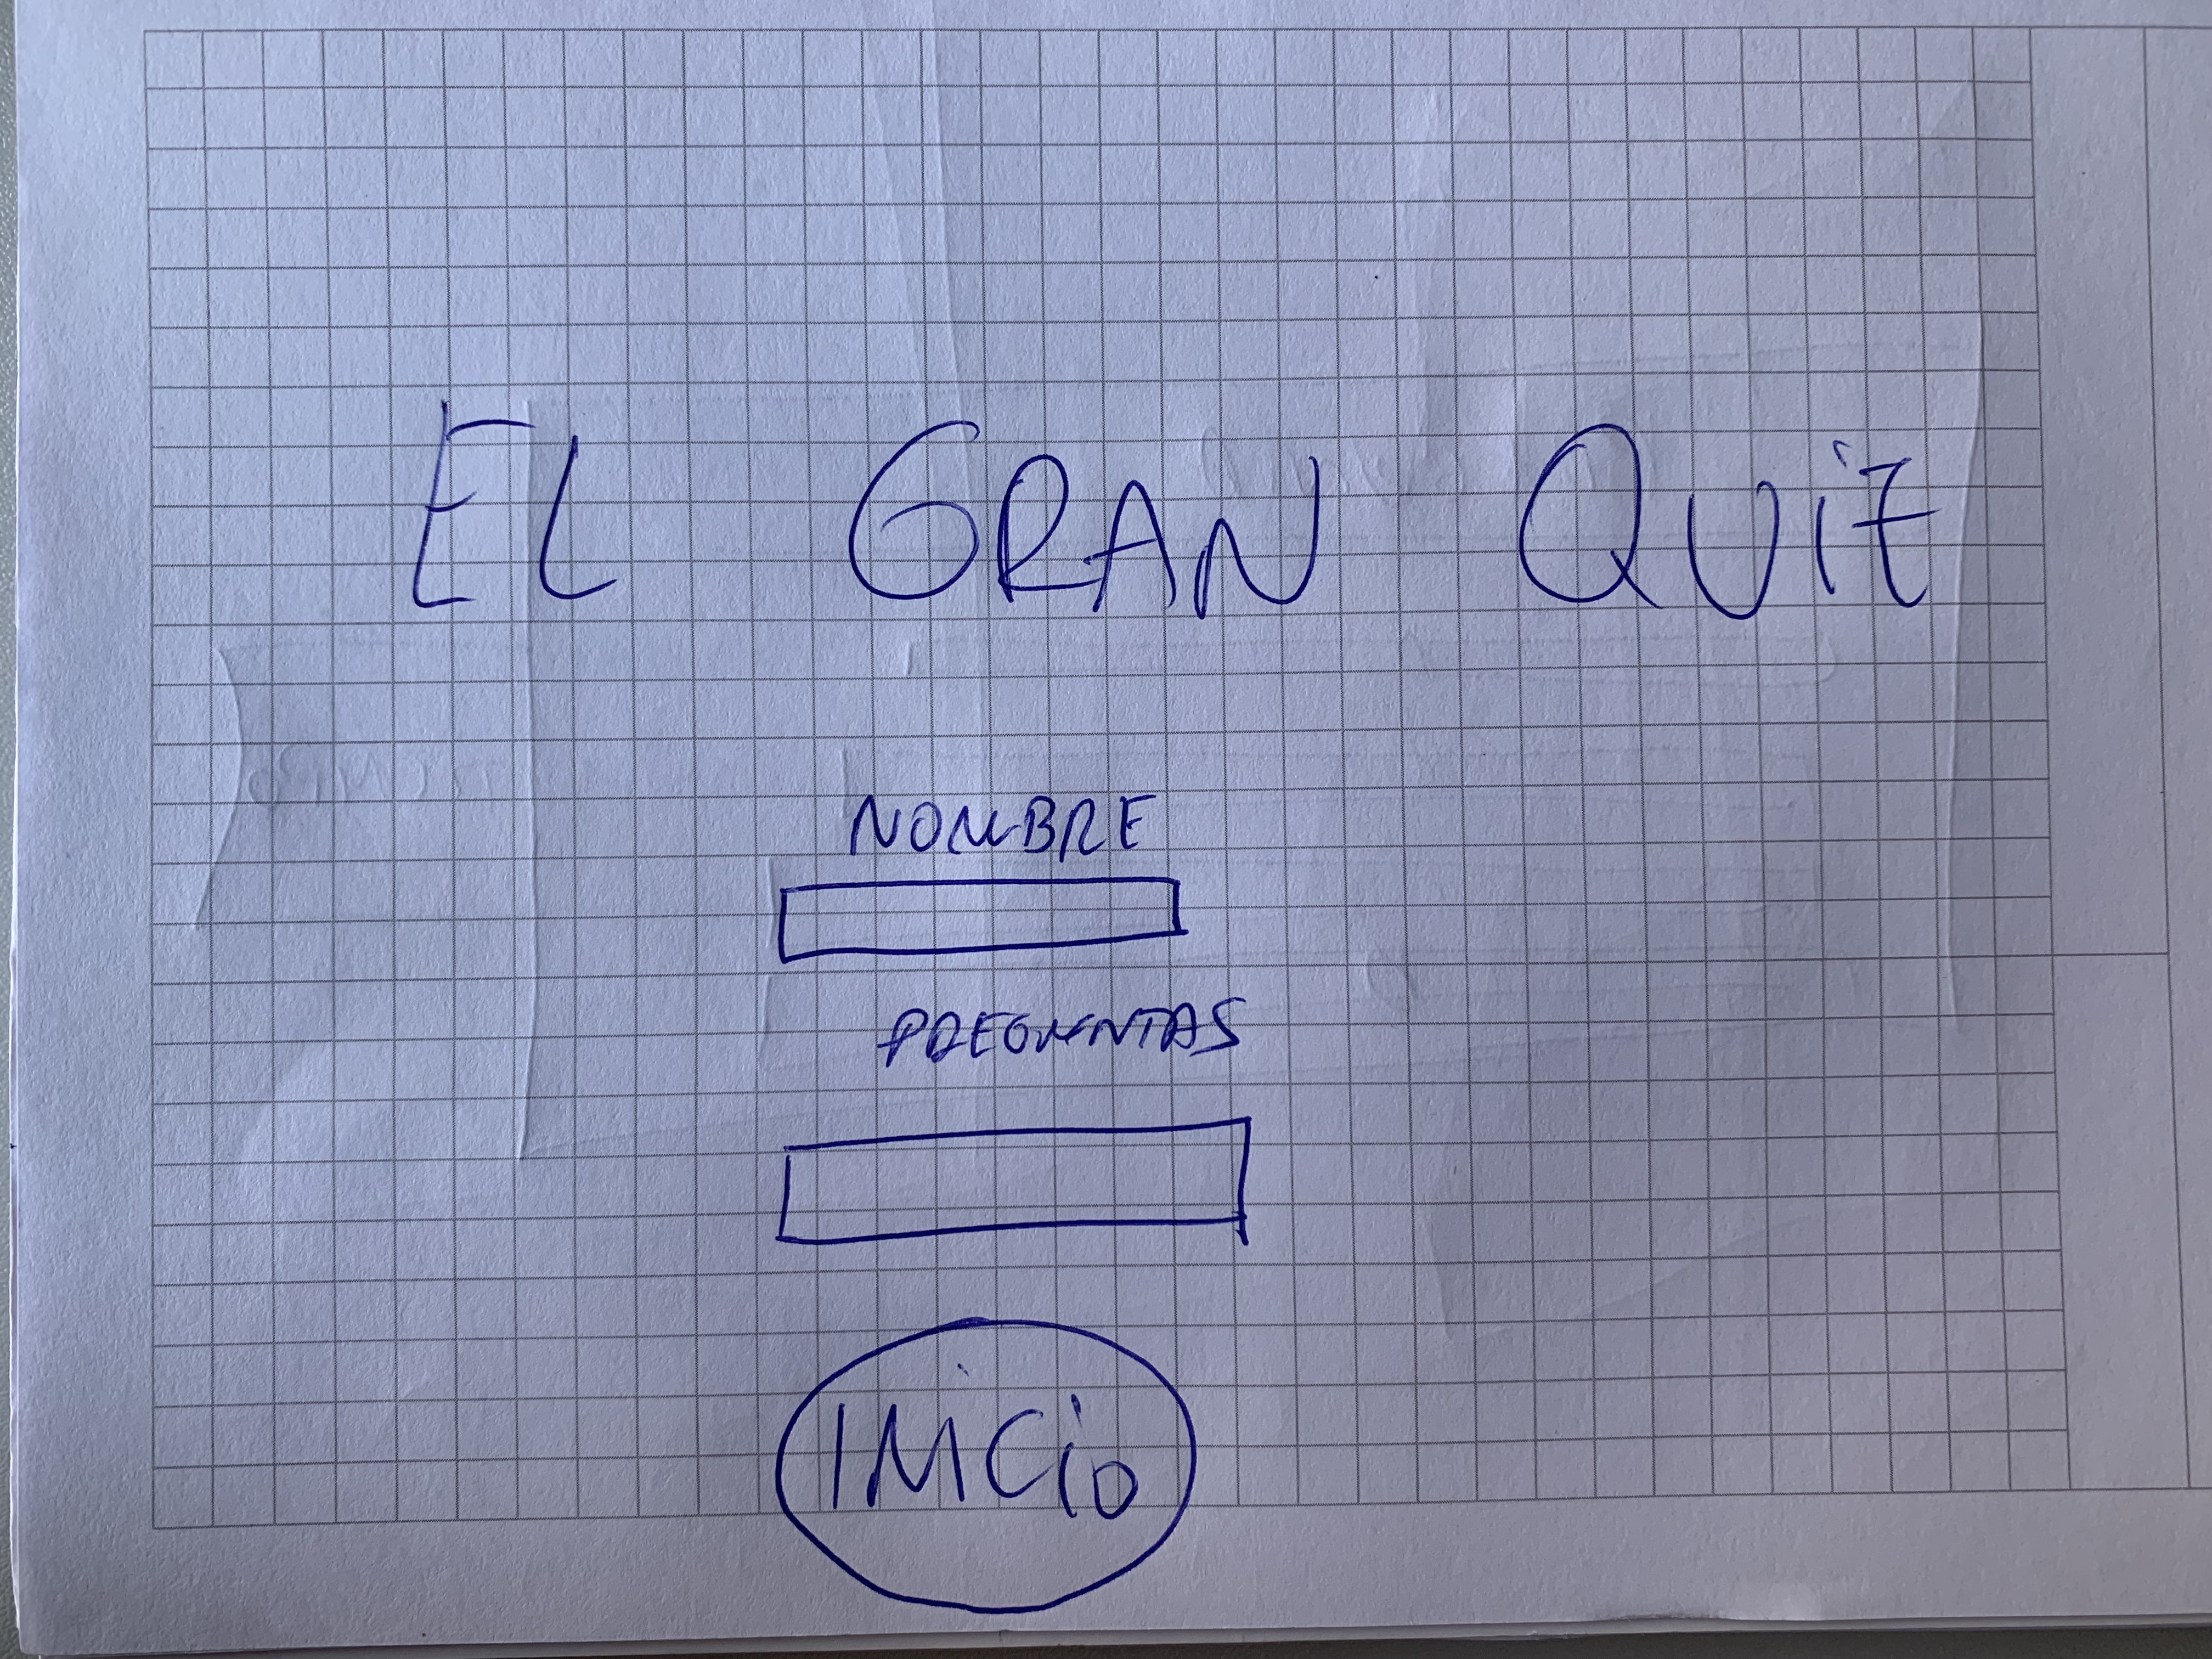 EL GRAN QUIZ
NOMBRE
PREGUNTAS
INICIO